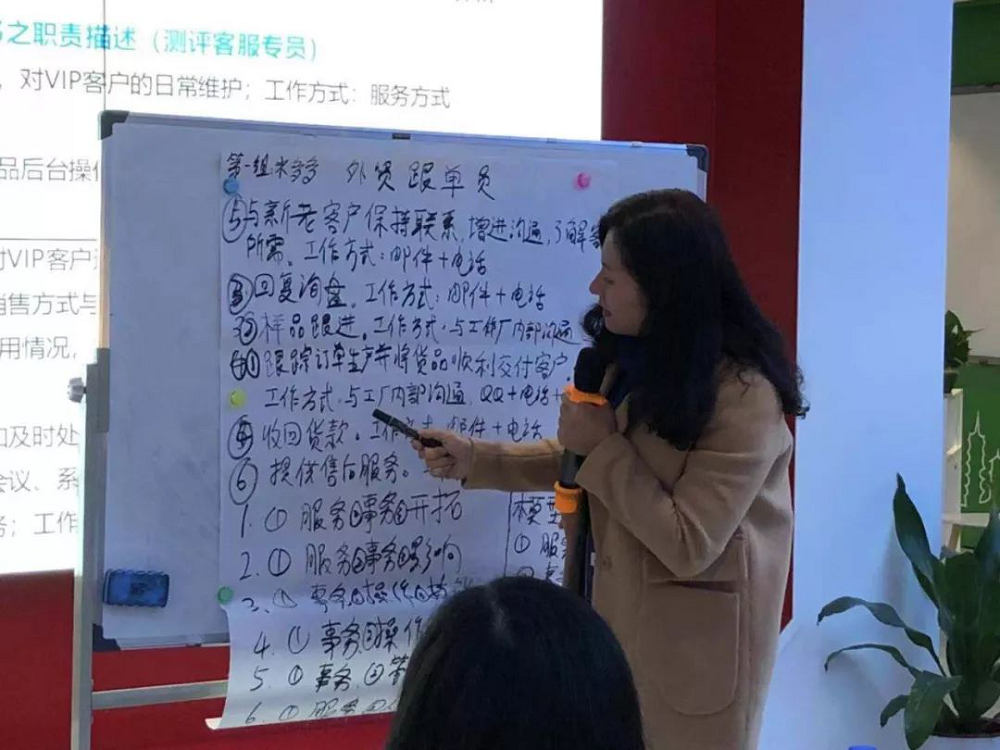 之职责描述（测评客服专员）
，对VIP客户的日常维护；工作方式：服务方式
品后台操
对VIP客户
销售方式与
用情况，
及时处
会议、系
务；工作
第一组:米多多 外贸跟单员
⑤与新老客户保持联系,增进沟通,了解客
所需。工作方式:邮件+电话
回复询盘。工作方式:邮件+电话
样品跟进。工作方式:与工厂内部沟通
跟踪订单生产并将货品顺利交付客户。
工作方式:与工厂内部沟通,QQ+电话+
收回货款。工作方式:邮件+电话
⑥ 提供售后服务。
1. ① 服务②事务③开拓
2. ① 服务②事务③影响
3. ① 事务②操作③
4. ① 事务②操作
5. ① 事务 ②管
6. ① 服务②
模型
① 服务